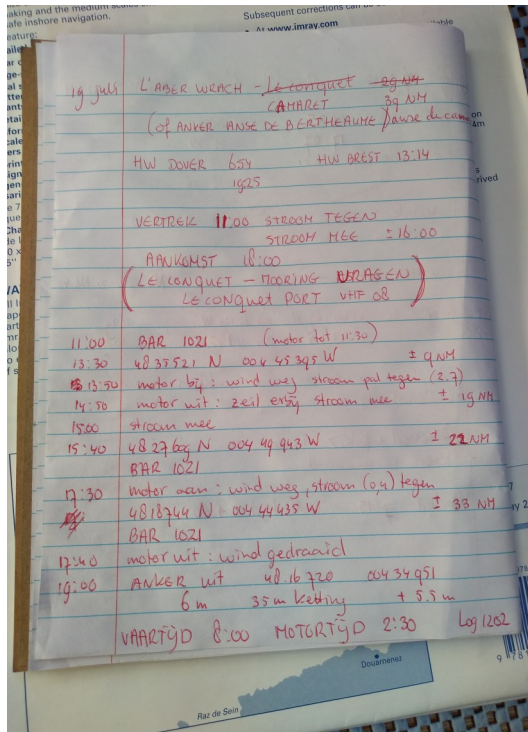 aking and the medium scales
afe inshore navigation.
eature:
Subsequent corrections can be
At www.imray.com
19 juli L'ABER WRACH - Le conquet 29 NM
CAMARET 39 NM
(of ANKER ANSE DE BERTHEAUME) anse de cam
HW DOVER 654 HW BREST 13:14
1925
VERTREK 11:00 STROOM TEGEN
STROOM MEE ± 16:00
AANKOMST 18:00
(LE CONQUET - MOORING VRAGEN
LE CONQUET PORT VHF 08)
11:00 BAR 1021 (motor tot 11:30)
13:30 48 35521 N 004 45 395 W ± 9 NM
13:50 motor bij: wind weg stroom pal tegen (2.7)
14:50 motor uit: zeil erbij stroom mee ± 19 NM
15:00 stroom mee
15:40 48 27 609 N 004 49 943 W ± 22 NM
BAR 1021
17:30 motor aan: wind weg, stroom (0,4) tegen
48 18 744 N 004 44 435 W ± 33 NM
BAR 1021
17:40 motor uit: wind gedraaid
19:00 ANKER uit 48.16 720 004 34 951
6 m 35 m ketting + 5.5 m
VAARTIJD 8:00 MOTORTIJD 2:30 Log 1202
Douarnenez
Raz de Sein
9 78